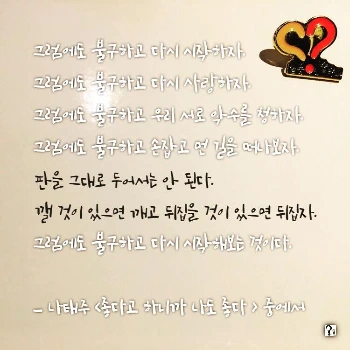 그럼에도 불구하고 다시 시작하자.
그럼에도 불구하고 다시 사랑하자.
그럼에도 불구하고 우리 서로 악수를 청하자.
그럼에도 불구하고 손잡고 먼 길을 떠나보자.
판을 그대로 두어서는 안 된다.
깰 것이 있으면 깨고 뒤집을 것이 있으면 뒤집자.
그럼에도 불구하고 다시 시작해보는 것이다.
- 나태주 <좋다고 하니까 나도 좋다> 중에서